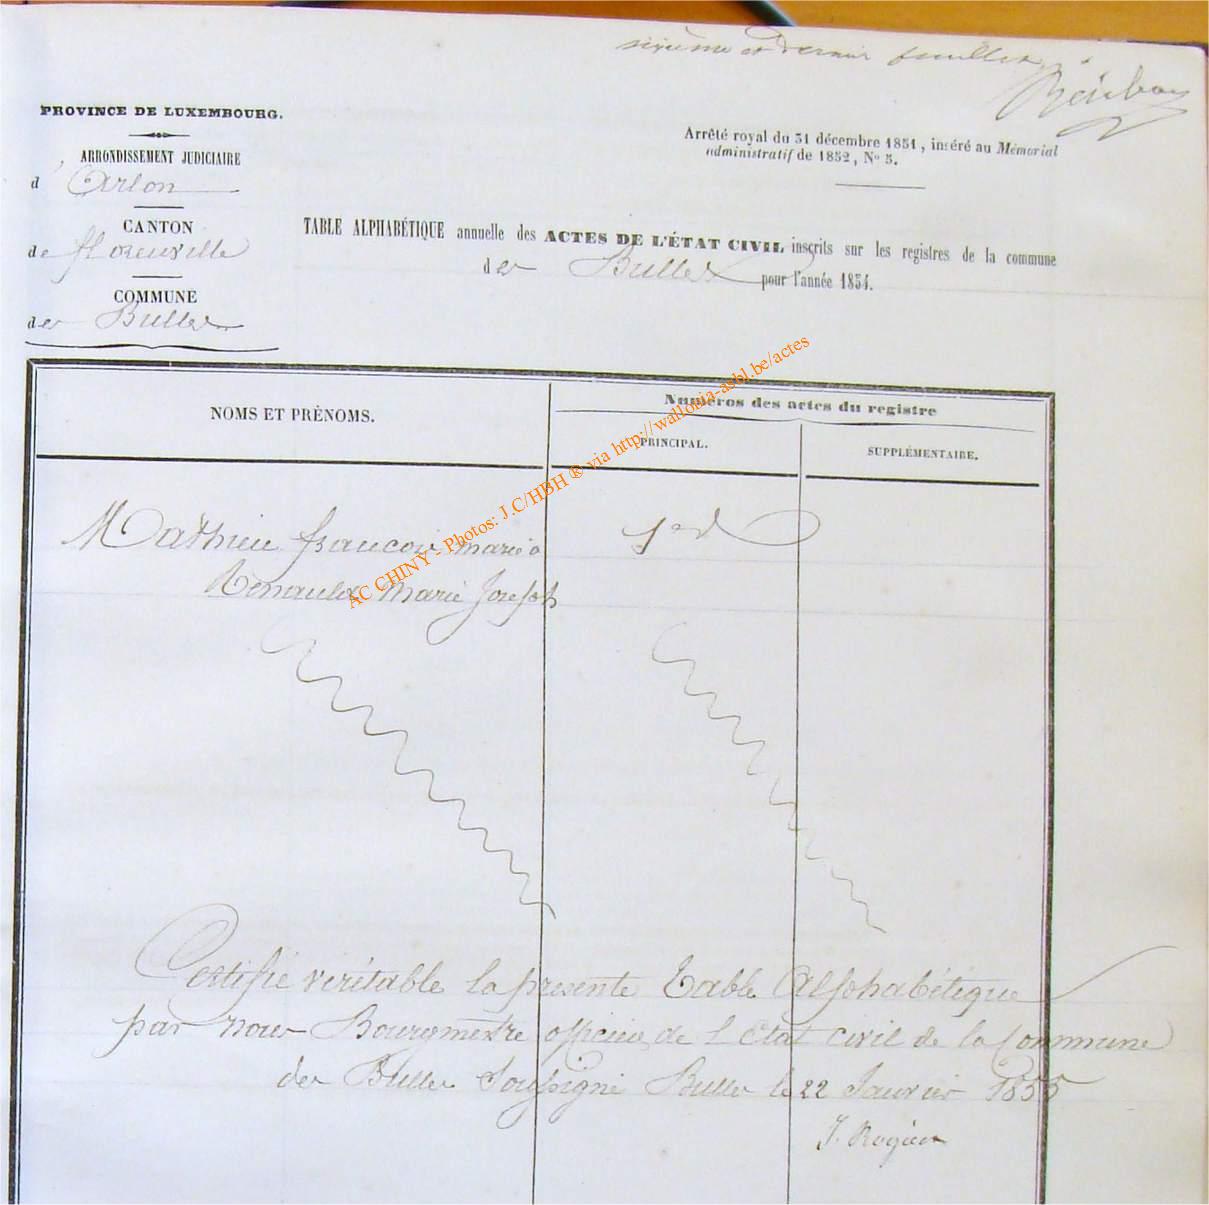 sixième et dernier feuillet
PROVINCE DE LUXEMBOURG.
ARRONDISSEMENT JUDICIAIRE
d'Arlon
CANTON
de florenville
COMMUNE
de Bulles
Arrêté royal du 31 décembre 1851, inséré au Mémorial
administratif de 1852, N° 5.
TABLE ALPHABÉTIQUE annuelle des ACTES DE L'ÉTAT CIVIL inscrits sur les registres de la commune
de Bulles pour l'année 1854.
NOMS ET PRÉNOMS.
Numéros des actes du registre
PRINCIPAL.
SUPPLÉMENTAIRE.
Mathieu françois marié a
Renauld Marie Joseph
AC CHINY - Photos: J.C/HBH ® via http://wallonia-asbl.be/actes
Certifié véritable la présente Table Alphabétique
par nous Bourgmestre officier de l'Etat civil de la Commune
de Bulles Soussigné Bulles le 22 Janvier 1855